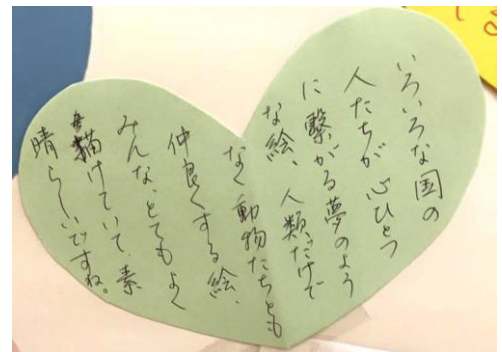 いろいろな国の
人たちが心ひとつ
に繋がる夢のよう
な絵、人類だけで
なく動物たちとも
仲良くする絵、
みんな、とてもよく
描けていて、素
晴らしいですね。